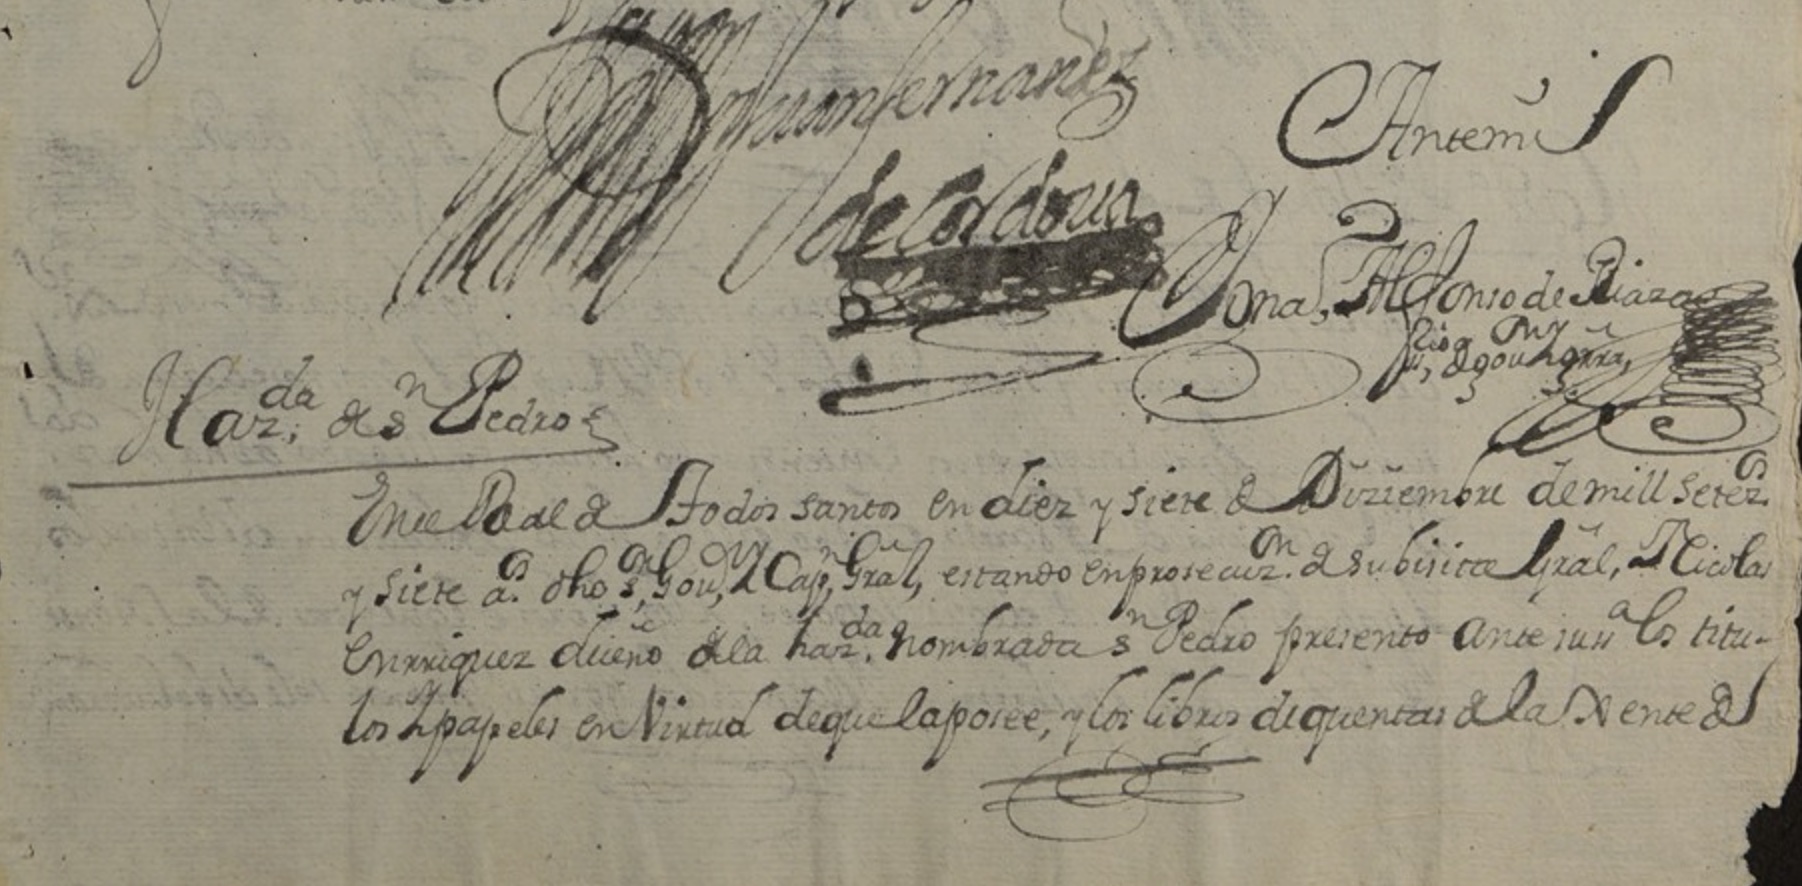 Don Juan fernandez
de Cordoua
Antemi
Alfonso de Riaza
ss.no de gou.on y grra,
Haz.da de S.n Pedro
En el Real de todos santos en diez y siete de Diziembre de mill setez.os
y siete a.os dho s.r Gou.or y Cap.n Gral, estando en prosecuz.on de su bisita Gral, Nicolas
Enrriquez dueño de la haz.da nombrada S.n Pedro presento ante su s.a los titu-
los y papeles en Virtud de que la posee, y los libros de quentas de la Xente de